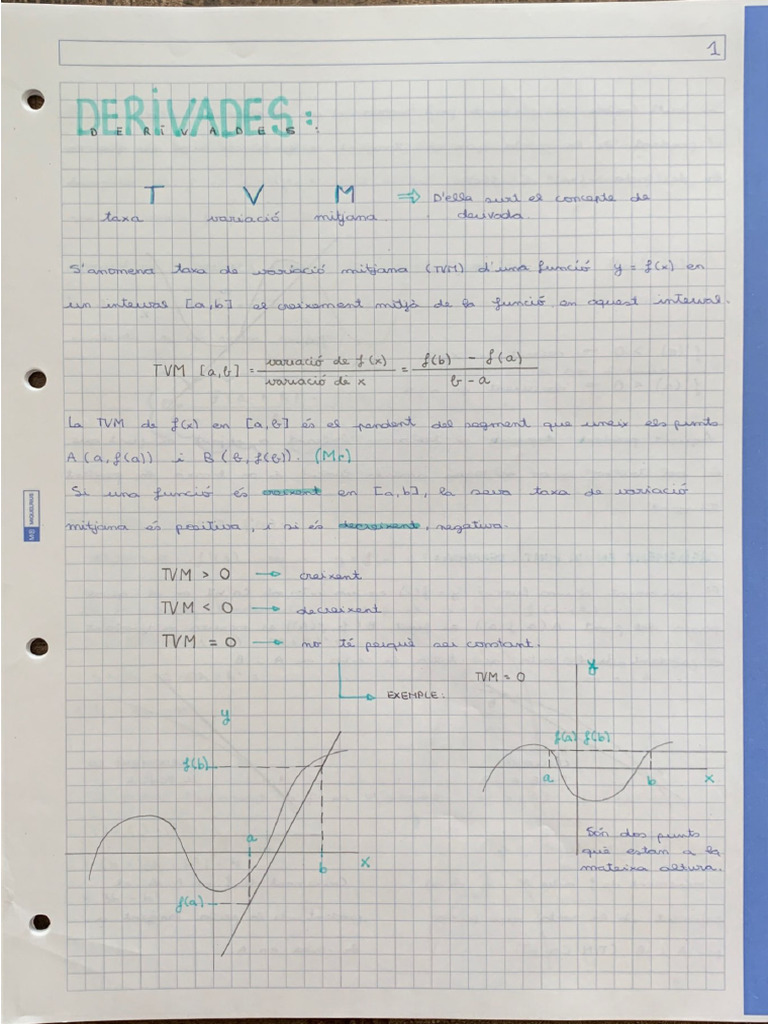 1
DERIVADES:
DERIVADES:
T V M ⇒ D'ella surt el concepte de
taxa variació mitjana derivada.
S'anomena taxa de variació mitjana (TVM) d'una funció y = f(x) en
un interval [a,b] al creixement mitjà de la funció en aquest interval.
TVM [a,b] = variació de f(x) / variació de x = f(b) - f(a) / b - a
La TVM de f(x) en [a,b] és el pendent del segment que uneix els punts
A (a, f(a)) i B (b, f(b)). (Mr)
Si una funció és creixent en [a,b], la seva taxa de variació
mitjana és positiva, i si és decreixent, negativa.
TVM > 0 → creixent
TVM < 0 → decreixent
TVM = 0 → no té perquè ser constant.
EXEMPLE:
TVM = 0
y
f(a) f(b)
a b x
Són dos punts
què estan a la
mateixa altura.
y
f(b)
a
b x
f(a)
MIQUELRIUS